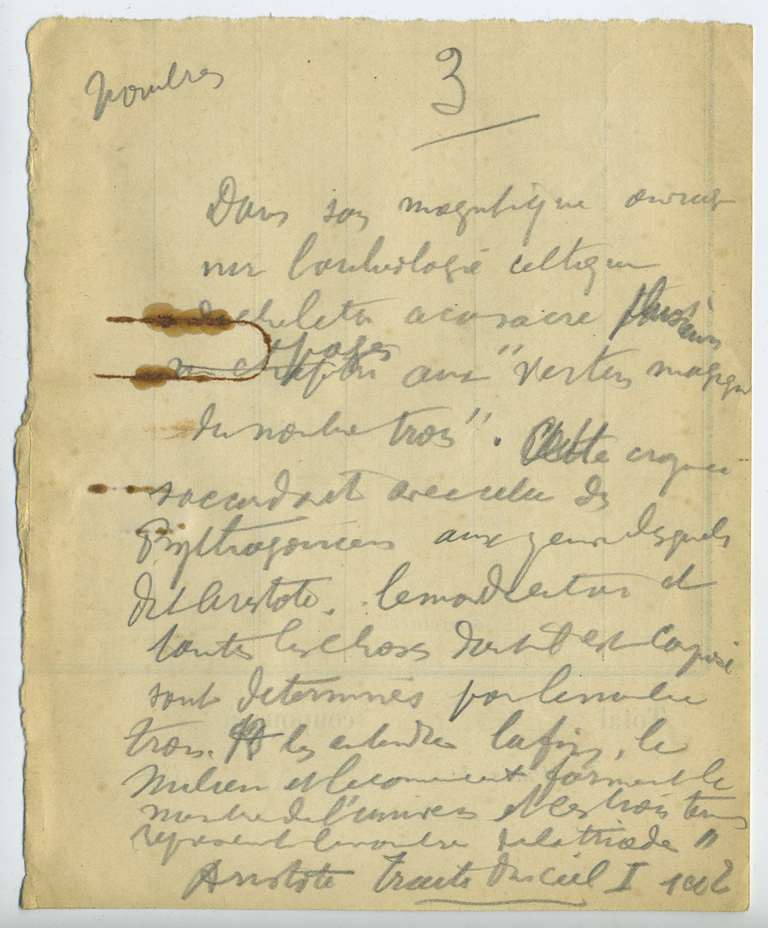 Nombres
3
Dans son magnifique ouvrage
sur l'archéologie celtique
Dechelette a consacré plusieurs
pages
un chapitre aux "vertus magiques
du nombre trois". Cette croyance
s'accordait avec celle des
Pythagoriciens aux yeux desquels
dit Aristote. le monde entier et
toutes les choses dont il est composé
sont déterminés par le nombre
trois. A les entendre la fin, le
milieu et le commencement forment le
nombre de l'univers et les trois termes
représentent le nombre de la triade "
Aristote Traité du ciel I